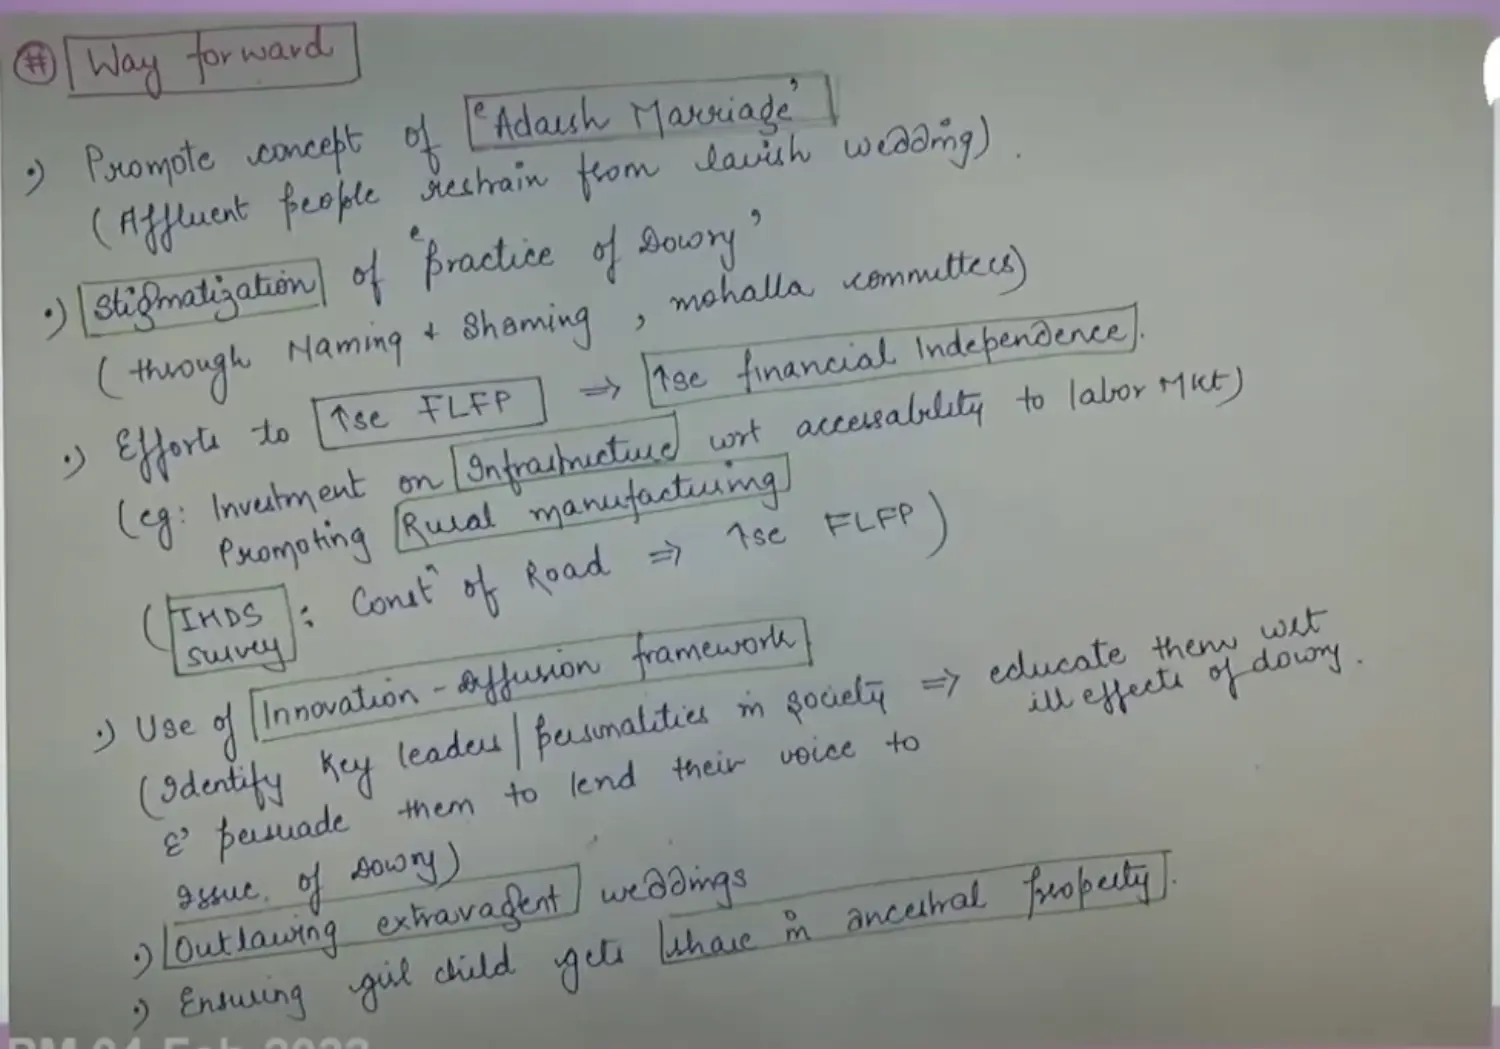 # Way forward
•) Promote concept of 'Adarsh Marriage'
(Affluent people restrain from lavish wedding).
•) Stigmatization of 'Practice of Dowry'
(through Naming + Shaming, mohalla committees)
•) Efforts to ↑se FLFP ⇒ ↑se financial Independence.
(eg: Investment on Infrastructure wrt accessability to labor Mkt)
Promoting Rural manufacturing
(IHDS survey : Constⁿ of Road ⇒ ↑se FLFP)
•) Use of Innovation - diffusion framework
(Identify key leaders / personalities in society ⇒ educate them wrt ill effects of dowry.
& persuade them to lend their voice to
issue. of Dowry)
•) Outlawing extravagent weddings
•) Ensuring girl child gets share in ancestral property.